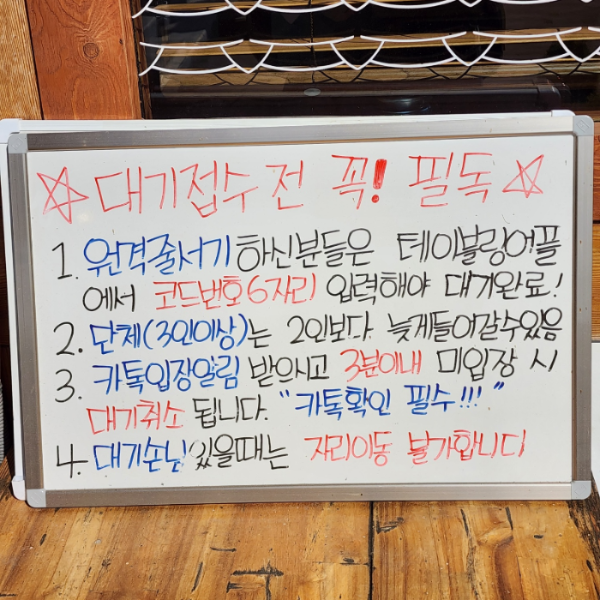 ☆대기접수 전 꼭! 필독☆
1. 원격줄서기 하신분들은 테이블링어플
에서 코드번호 6자리 입력해야 대기완료!
2. 단체(3인이상)는 2인보다 늦게들어갈수있음
3. 카톡입장알림 받으시고 3분이내 미입장 시
대기취소 됩니다. "카톡확인 필수!!!"
4. 대기손님 있을때는 자리이동 불가합니다